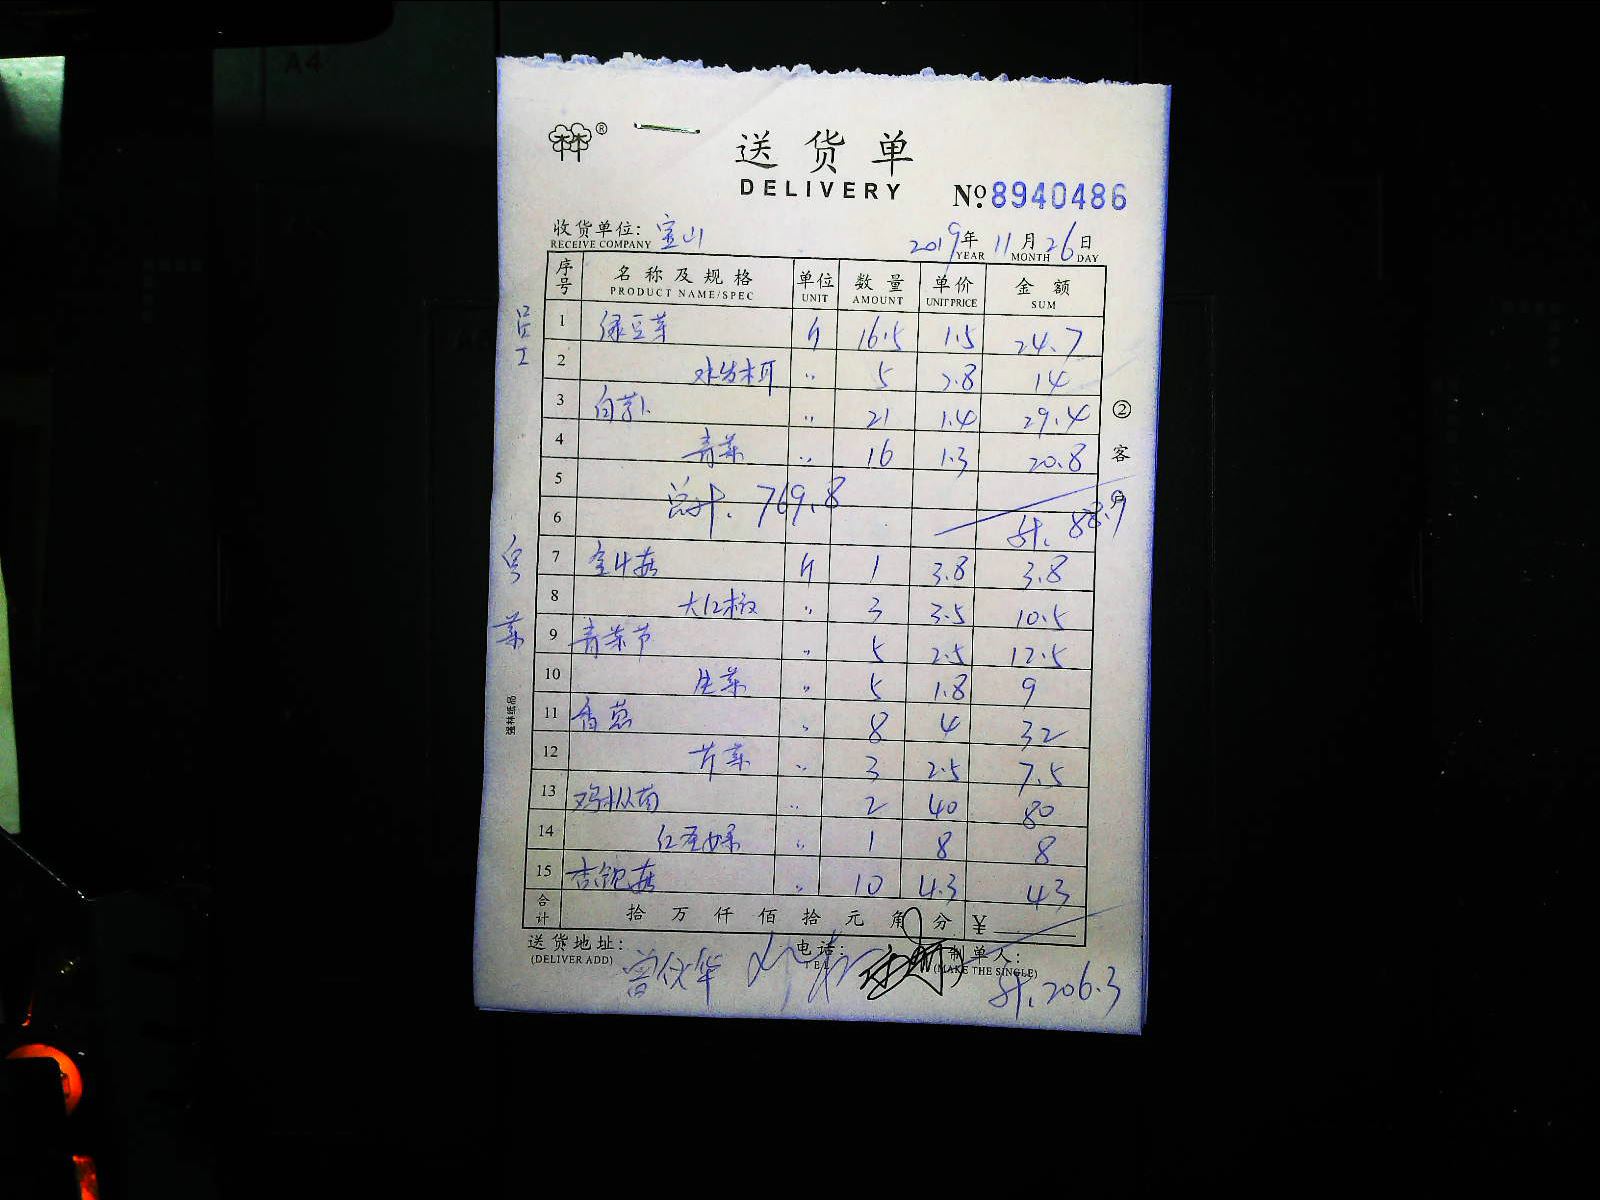 送货单
DELIVERY
№ 8940486
收货单位: 宝山
RECEIVE COMPANY
2019年 11月 26日
YEAR MONTH DAY
序号 名称及规格 单位 数量 单价 金额
PRODUCT NAME/SPEC UNIT AMOUNT UNIT PRICE SUM
员工
1 绿豆芽 斤 16.5 1.5 24.7
2 水发木耳 〃 5 2.8 14
3 白萝卜 〃 21 1.4 29.4
4 青菜 〃 16 1.3 20.8
5 总计. 769.8
6 计. 88.9
7 金针菇 斤 1 3.8 3.8
8 大红椒 〃 3 3.5 10.5
9 青菜节 〃 5 2.5 12.5
10 生菜 〃 5 1.8 9
11 香葱 〃 8 4 32
12 芹菜 〃 3 2.5 7.5
13 鸡枞菌 〃 2 40 80
14 红圣女果 〃 1 8 8
15 杏鲍菇 〃 10 4.3 43
合计 拾 万 仟 佰 拾 元 角 分 ¥
送货地址: 电话: 制单人:
(DELIVER ADD) TEL (MAKE THE SINGLE)
计. 206.3
②客户
强林纸品
A4